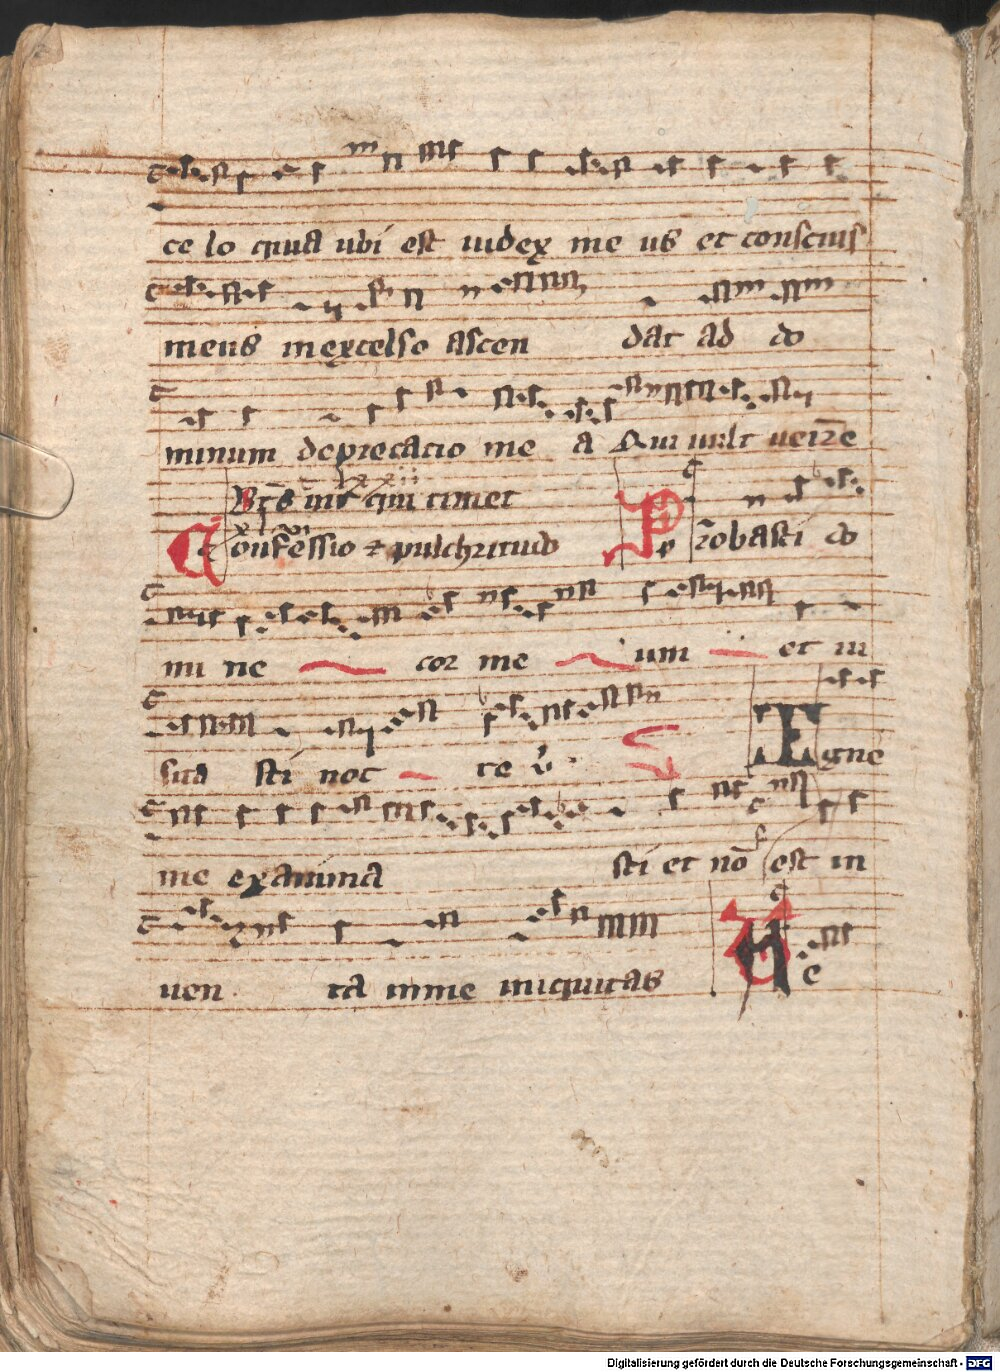 ce lo quia ubi est iudex me us et conscius
meus in excelso ascen dat ad do
minum deprecacio me a Qui uult uenire
Bts uir qui timet lxxii
Confessio et pulchritudo Probasti do
mi ne cor me um et ui
sita sti noc te v̓ Igne
me examina sti et nō est in
uen ta in me iniquitas Ne
Digitalisierung gefördert durch die Deutsche Forschungsgemeinschaft - DFG